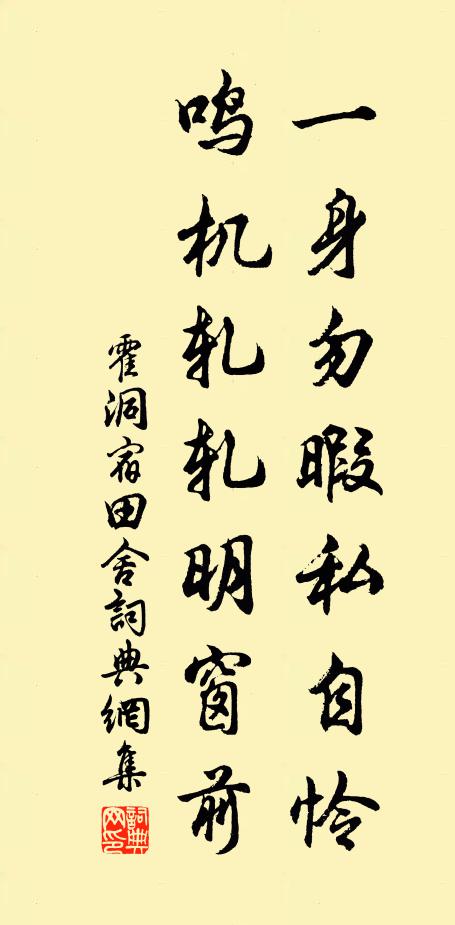 一身勿暇私自怜
鸣机轧轧明窗前
霍洞宿田舍詞典網集
詞典網印